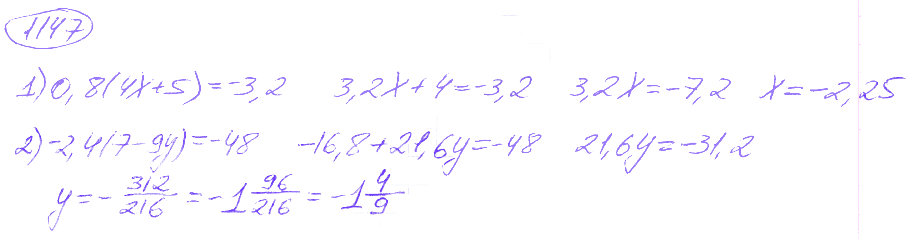 1147
1) 0,8(4x+5)=-3,2 3,2x+4=-3,2 3,2x=-7,2 x=-2,25
2) -2,4(7-9y)=-48 -16,8+21,6y=-48 21,6y=-31,2
y=-312/216=-1 96/216=-1 4/9